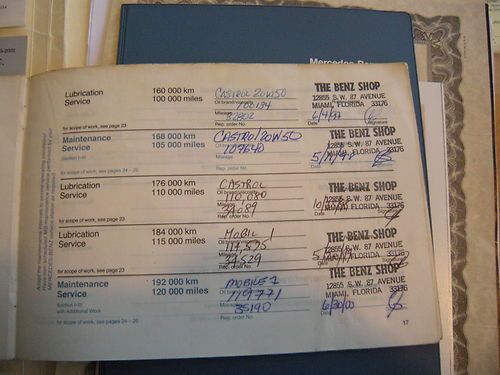 Mercedes-Benz
Lubrication
Service
160 000 km
100 000 miles
CASTROL 20W50
Oil brand/
Mileage
32802
Rep. order No.
THE BENZ SHOP
12855 S.W. 87 AVENUE
MIAMI, FLORIDA 33176
Date
Signature
for scope of work, see page 23
Maintenance
Service
Section I-III
168 000 km
105 000 miles
CASTROL 20W50
107640
Mileage
Rep. order No.
THE BENZ SHOP
12855 S.W. 87 AVENUE
MIAMI, FLORIDA 33176
for scope of work, see pages 24 – 25
Lubrication
Service
176 000 km
110 000 miles
CASTROL
Oil brand/
110,080
34089
Rep. order No.
THE BENZ SHOP
12855 S.W. 87 AVENUE
MIAMI, FLORIDA 33176
Date
for scope of work, see page 23
Lubrication
Service
184 000 km
115 000 miles
MOBIL 1
Oil brand/
114,575
34529
Rep. order No.
THE BENZ SHOP
12855 S.W. 87 AVENUE
MIAMI, FLORIDA 33176
Date
for scope of work, see page 23
Maintenance
Service
Section I-III
with Additional Work
192 000 km
120 000 miles
MOBILE 1
119771
35190
Rep. order No.
THE BENZ SHOP
12855 S.W. 87 AVENUE
MIAMI, FLORIDA 33176
6/30/00
Date
for scope of work, see pages 24 – 26
17